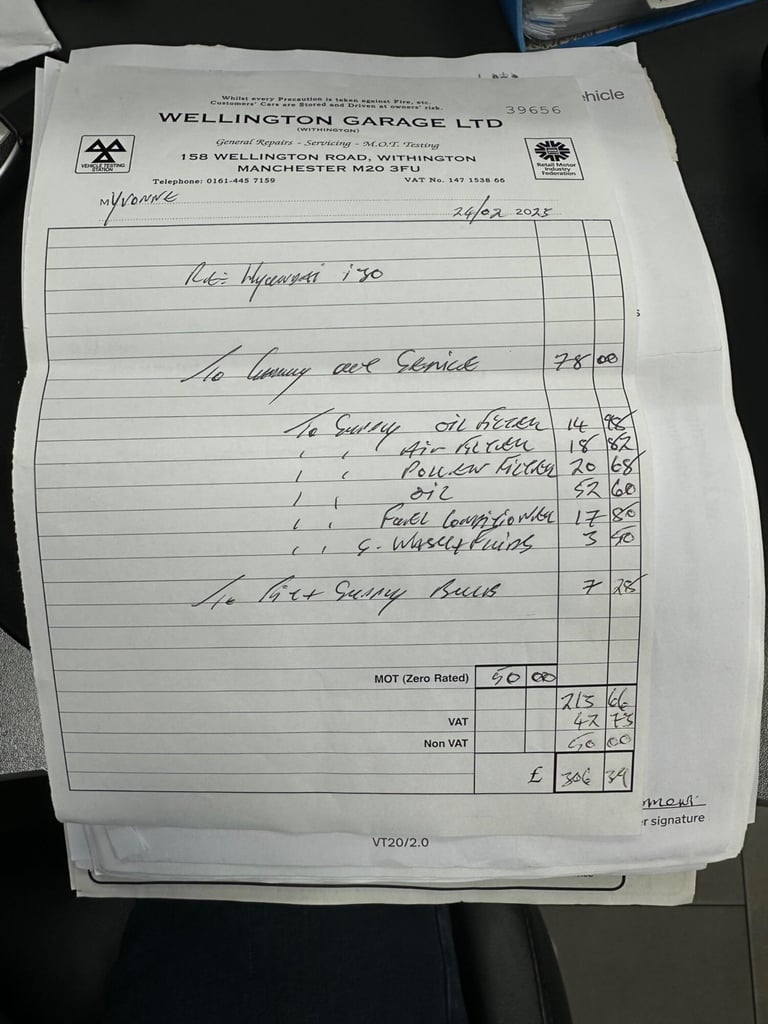 hicle
Whilst every Precaution is taken against Fire, etc.
Customers' Cars are Stored and Driven at owners' risk.
39656
WELLINGTON GARAGE LTD
(WITHINGTON)
General Repairs - Servicing - M.O.T. Testing
VEHICLE TESTING STATION
158 WELLINGTON ROAD, WITHINGTON
MANCHESTER M20 3FU
Retail Motor Industry Federation
Telephone: 0161-445 7159 VAT No. 147 1538 66
M YVONNE
24/02 2025
Re: Hyundai i30
To Carry out Service 78 00
To Supply oil Filter 14 98
" " Air Filter 18 82
" " Pollen Filter 20 68
" " oil 52 60
" " Fuel Conditioner 17 80
" " S. Wash + Fluids 3 50
To Fit + Supply Bulb 7 28
MOT (Zero Rated) 50 00
213 66
VAT 42 73
Non VAT 50 00
£ 306 39
r signature
VT20/2.0